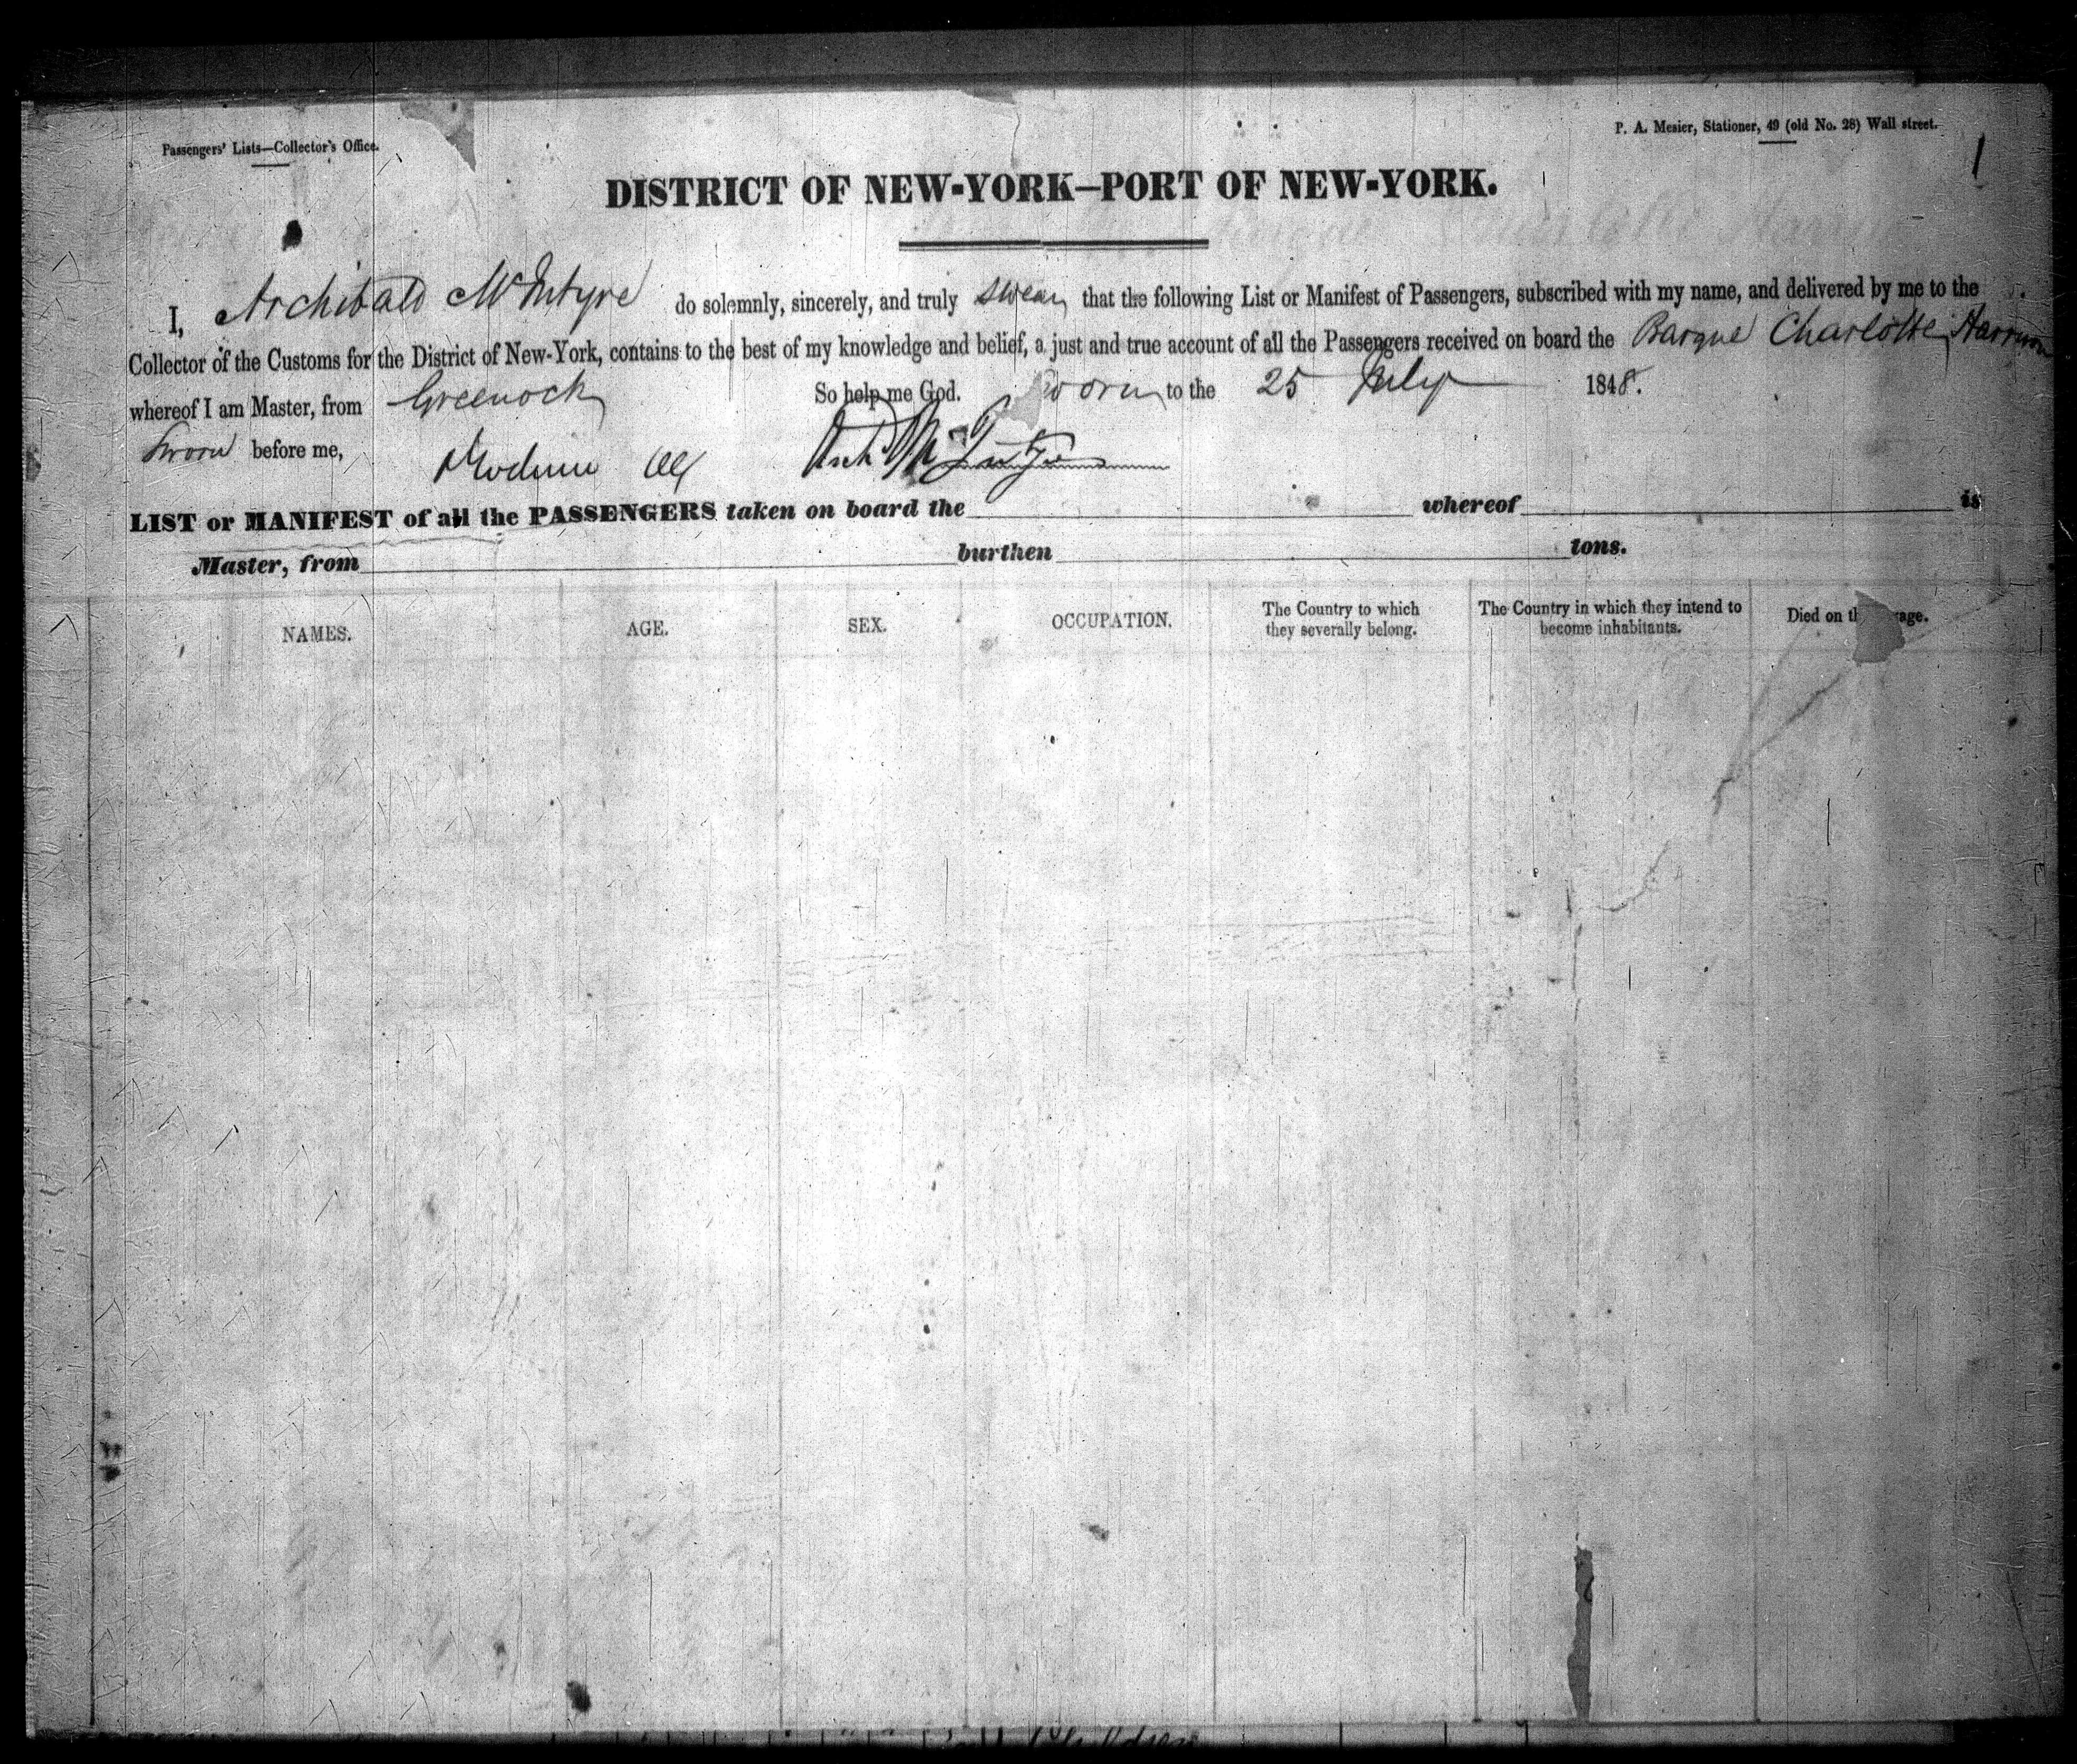 Passengers' Lists—Collector's Office.
P. A. Mesier, Stationer, 49 (old No. 28) Wall street.
1
DISTRICT OF NEW-YORK—PORT OF NEW-YORK.
I, Archibald McIntyre do solemnly, sincerely, and truly swear that the following List or Manifest of Passengers, subscribed with my name, and delivered by me to the
Collector of the Customs for the District of New-York, contains to the best of my knowledge and belief, a just and true account of all the Passengers received on board the Barque Charlotte Harrison
whereof I am Master, from Greenock So help me God. Sworn to the 25 July 1848.
Sworn before me, Archd McIntyre
LIST or MANIFEST of all the PASSENGERS taken on board the whereof is
Master, from burthen tons.
NAMES. AGE. SEX. OCCUPATION. The Country to which they severally belong. The Country in which they intend to become inhabitants. Died on th age.